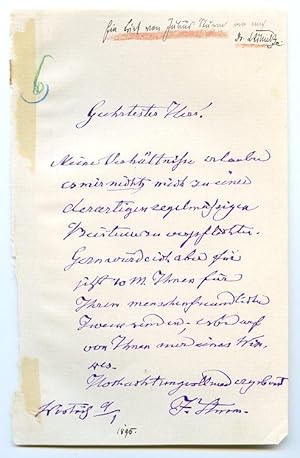 Ein Brief von Julius Sturm
Geehrtester Herr!
Meine Verhältnisse erlauben
es mir nicht, mich zu einer
derartigen regelmäßigen
Beisteuer zu verpflichten.
Gern würde ich aber für
jetzt 10 M. Ihnen für
Ihren menschenfreundlichen
Zweck senden, es bedarf
von Ihnen nur eines Win-
kes.
Hochachtungsvoll und ergebenst
J. Sturm.
1895.